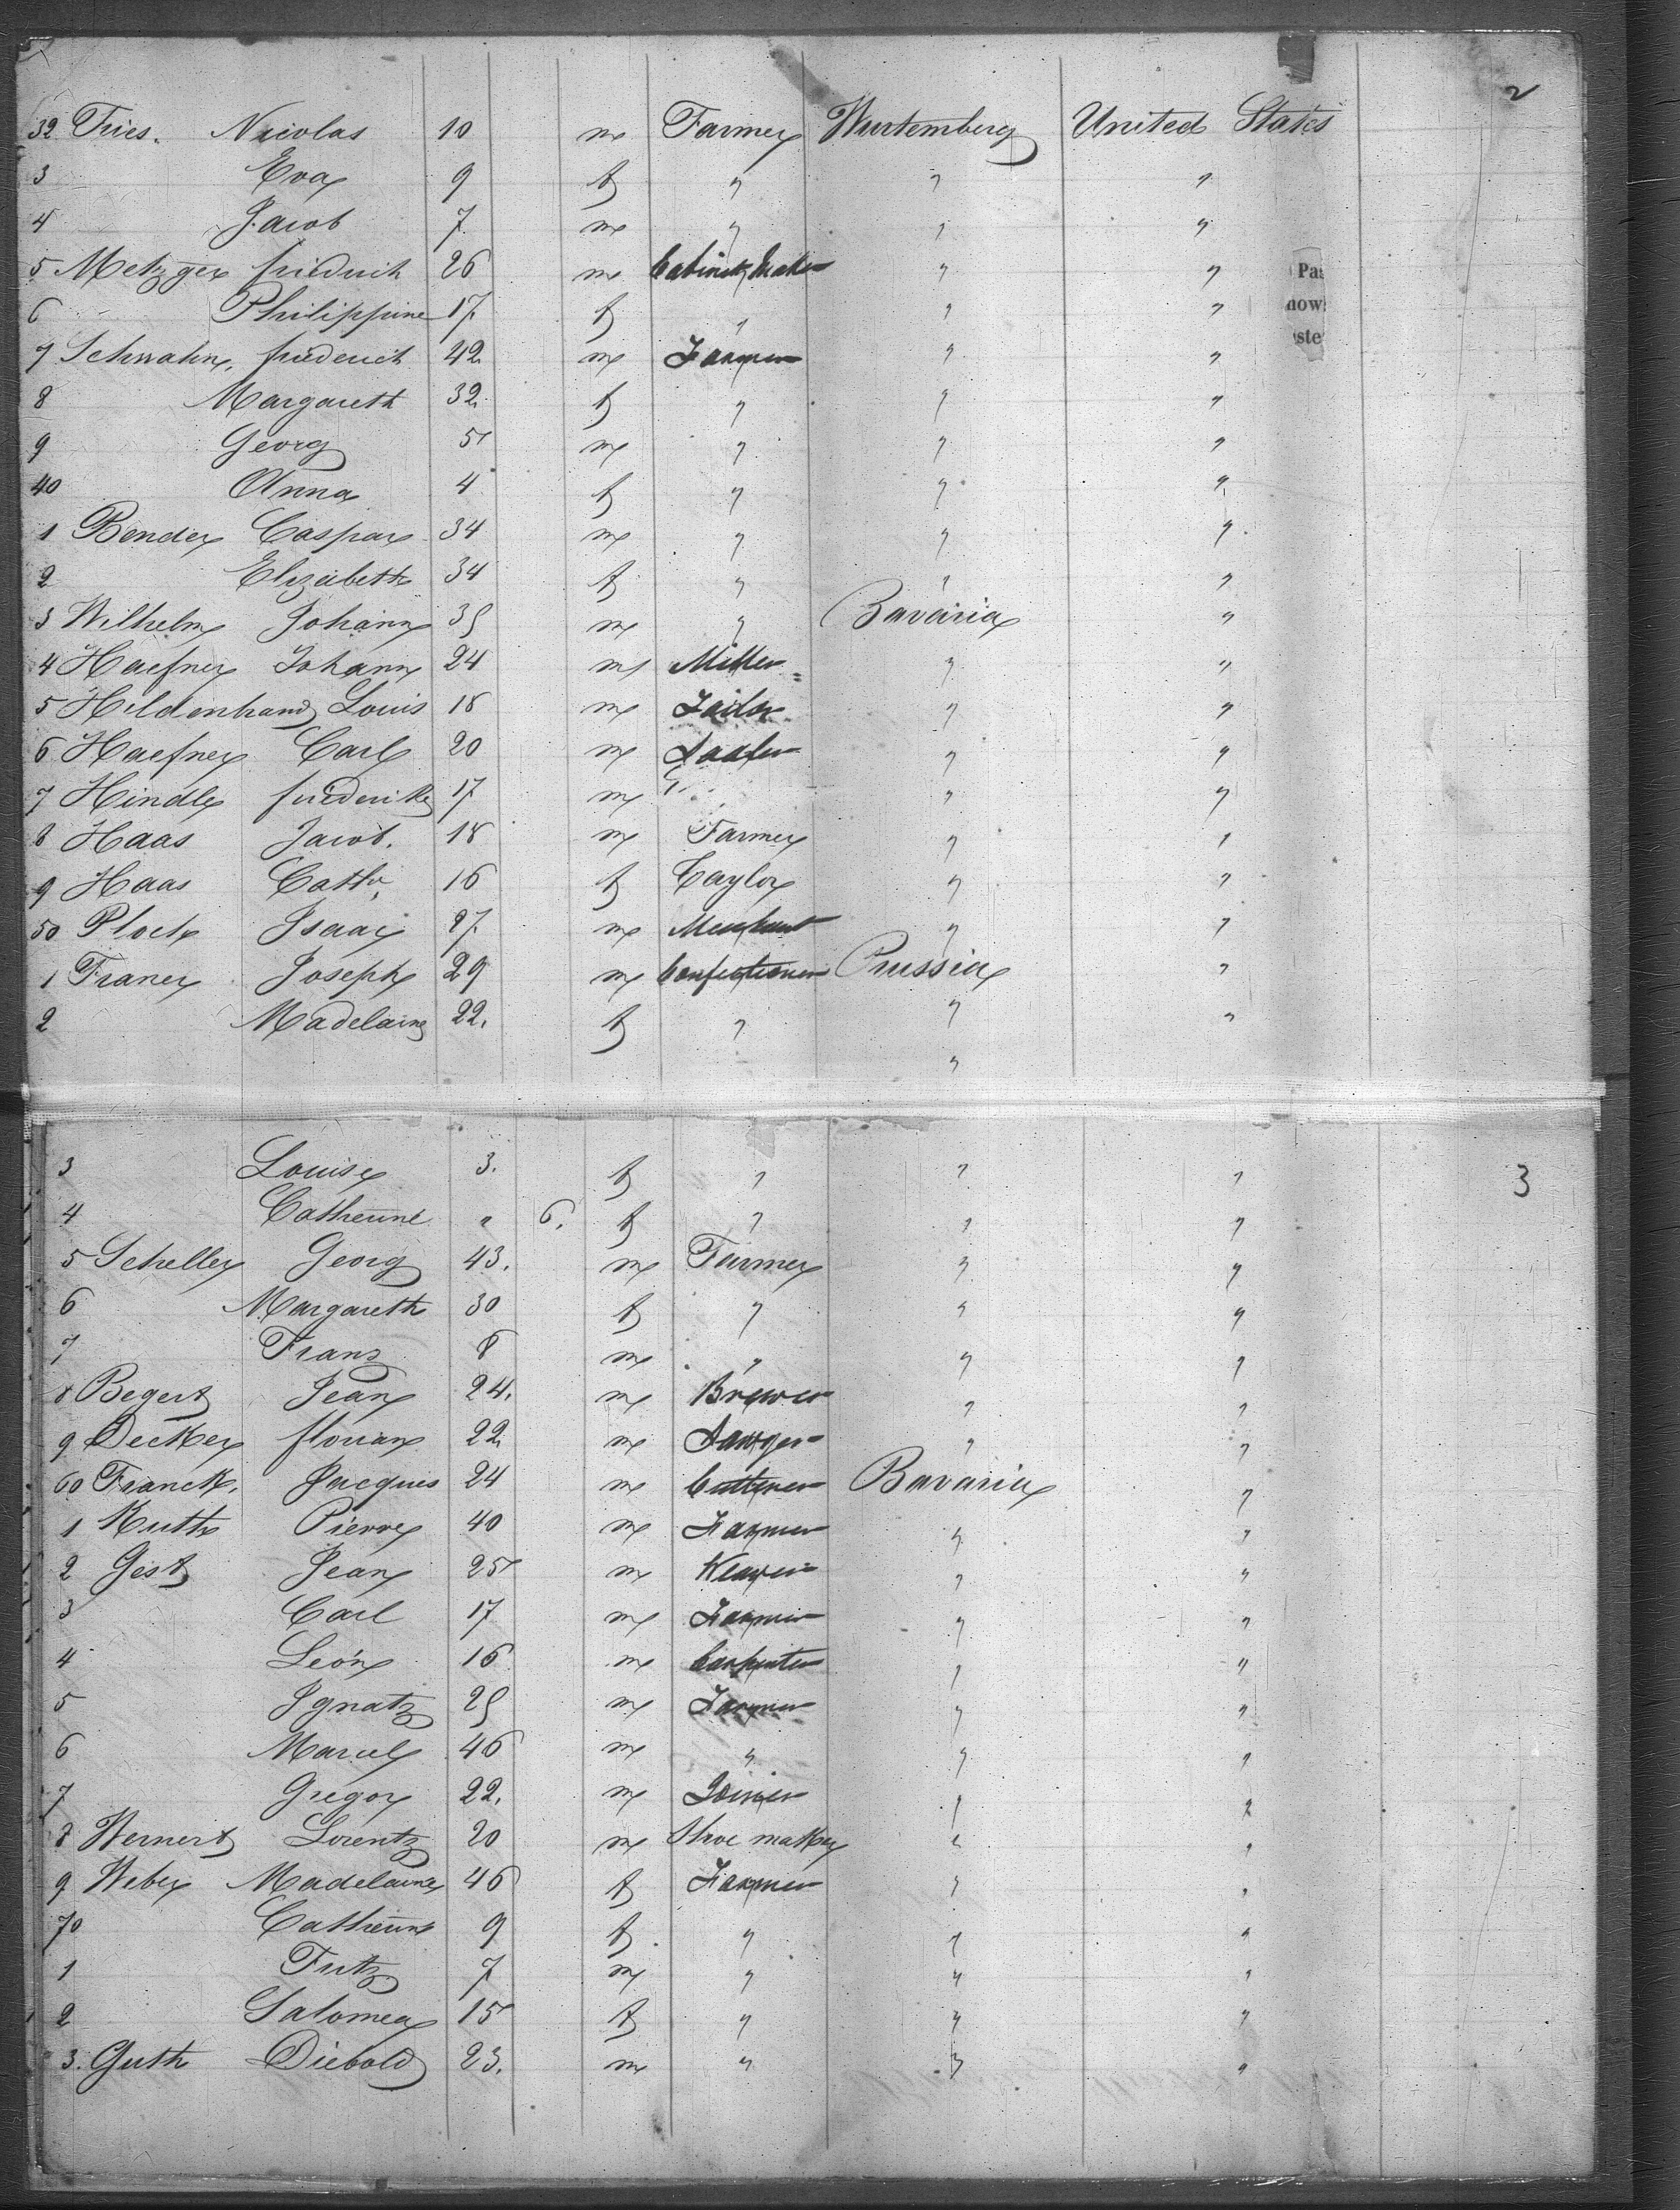 2
32 Fries. Nicolas 10 m Farmer Wurtemberg United States
3 Eva 9 f " " "
4 Jacob 7 m " " "
5 Metzger friedrich 26 m Cabinet Maker " "
Pas
6 Philippine 17 f " " "
now
7 Schwahn, friederich 42 m Farmer " "
ste
8 Margareth 32 f " " "
9 Georg 5 m " " "
40 Anna 4 f " " "
1 Bender Caspar 34 m " " "
2 Elizabeth 34 f " " "
3 Wilhelm Johann 35 m " Bavaria "
4 Haefner Johann 24 m Miller " "
5 Hildenbrand Louis 18 m Tailor " "
6 Haefner Carl 20 m " "
7 Hindle friederike 17 m " " "
8 Haas Jacob. 18 m Farmer " "
9 Haas Cath. 16 f Taylor " "
50 Ploch Isaac 27 m Merchant " "
1 Franer Joseph 29 m Confectioner Prussia "
2 Madelaine 22. f " " "
"
3
3 Louise 3. f " " "
4 Catherine " 6. f " " "
5 Scheller Georg 43. m Farmer " "
6 Margareth 30 f " " "
7 Franz 8 m " " "
8 Begert Jean 24. m Brewer " "
9 Decker florian 22 m " "
60 Franck. Jacques 24 m Bavaria "
1 Kuth Pierre 40 m Farmer " "
2 Gest Jean 25 m Weaver " "
3 Carl 17 m Farmer " "
4 León 16 m Carpenter " "
5 Ignatz 25 m Farmer " "
6 Marcel 46 m " " "
7 Gregor 22. m Joiner " "
8 Wernert Lorentz 20 m Shoe maker " "
9 Weber Madelaine 46 f Farmer " "
70 Catherine 9 f " " "
1 Fritz 7 m " " "
2 Salomea 15 f " " "
3. Guth Diebold 23. m " " "